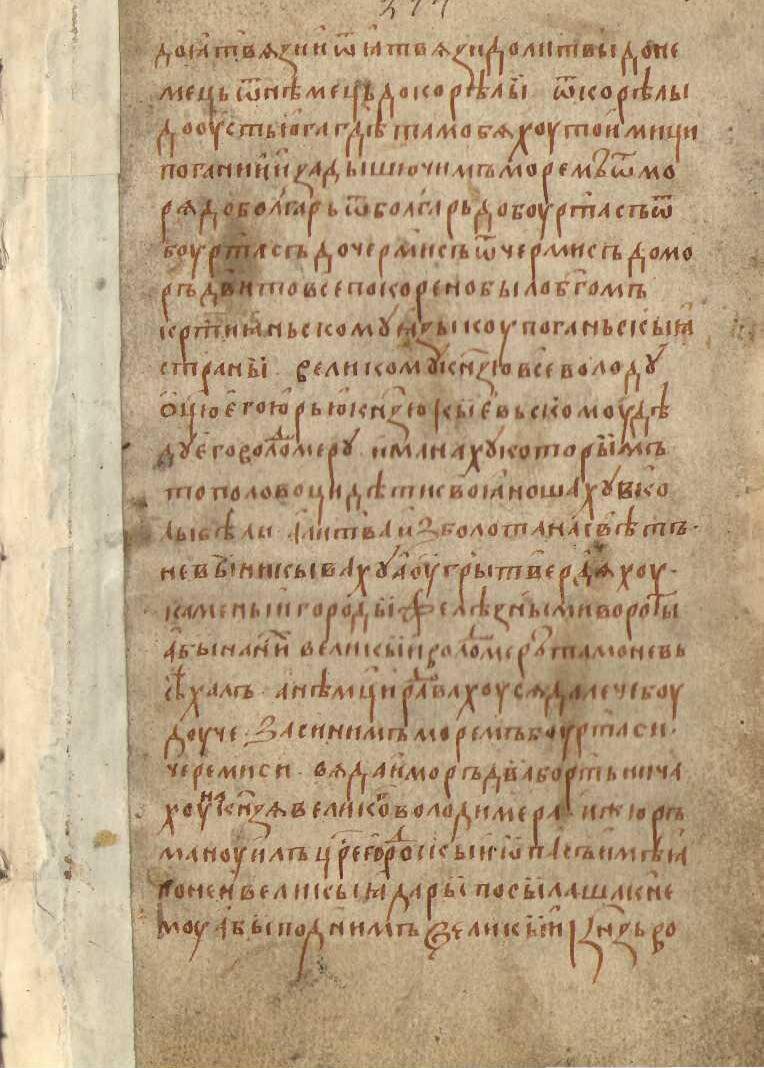 до ꙗтвѧзи и ѿ ꙗтвѧзи до литвы до не
мець ѿ нѣмець до корѣлы ѿ корѣлы
до оустьюга гдѣ тамо бѧхоу тоимици
погании и за дышючимъ моремъ ѿ мо
рѧ до болгарь ѿ болгарь до боуртасъ ѿ
боуртасъ до чермисъ ѿ чермисъ до мо
рьдви то все покорено было бгомъ
крⷭтиꙗньскому ꙗзыкоу поганьскыꙗ
страны великому кнѧзю всеволоду
ѡц҃ю его юрью кнѧзю кыевьскомоу дѣ
ду его володимеру и манаху которымъ
то половоци дѣти своꙗ ношаху в ко
лыбѣли а литва из болота на свѣтъ
не выникываху а оугры твердѧхоу
каменыи городы желѣзными вороты
абы на ни великыи володимеръ тамо не вь
ѣхалъ а нѣмци радовахоусѧ далече боу
доуче за синимъ моремъ боуртаси
черемиси вѧда и моръдва бортьнича
хоу на кнѧзѧ великого володимера и жюръ
маноуилъ цр҃егородскыи ѡпасъ имѣꙗ
поне и великыꙗ дары посылаша к не
моу абы под нимъ великыи кнѧзь во